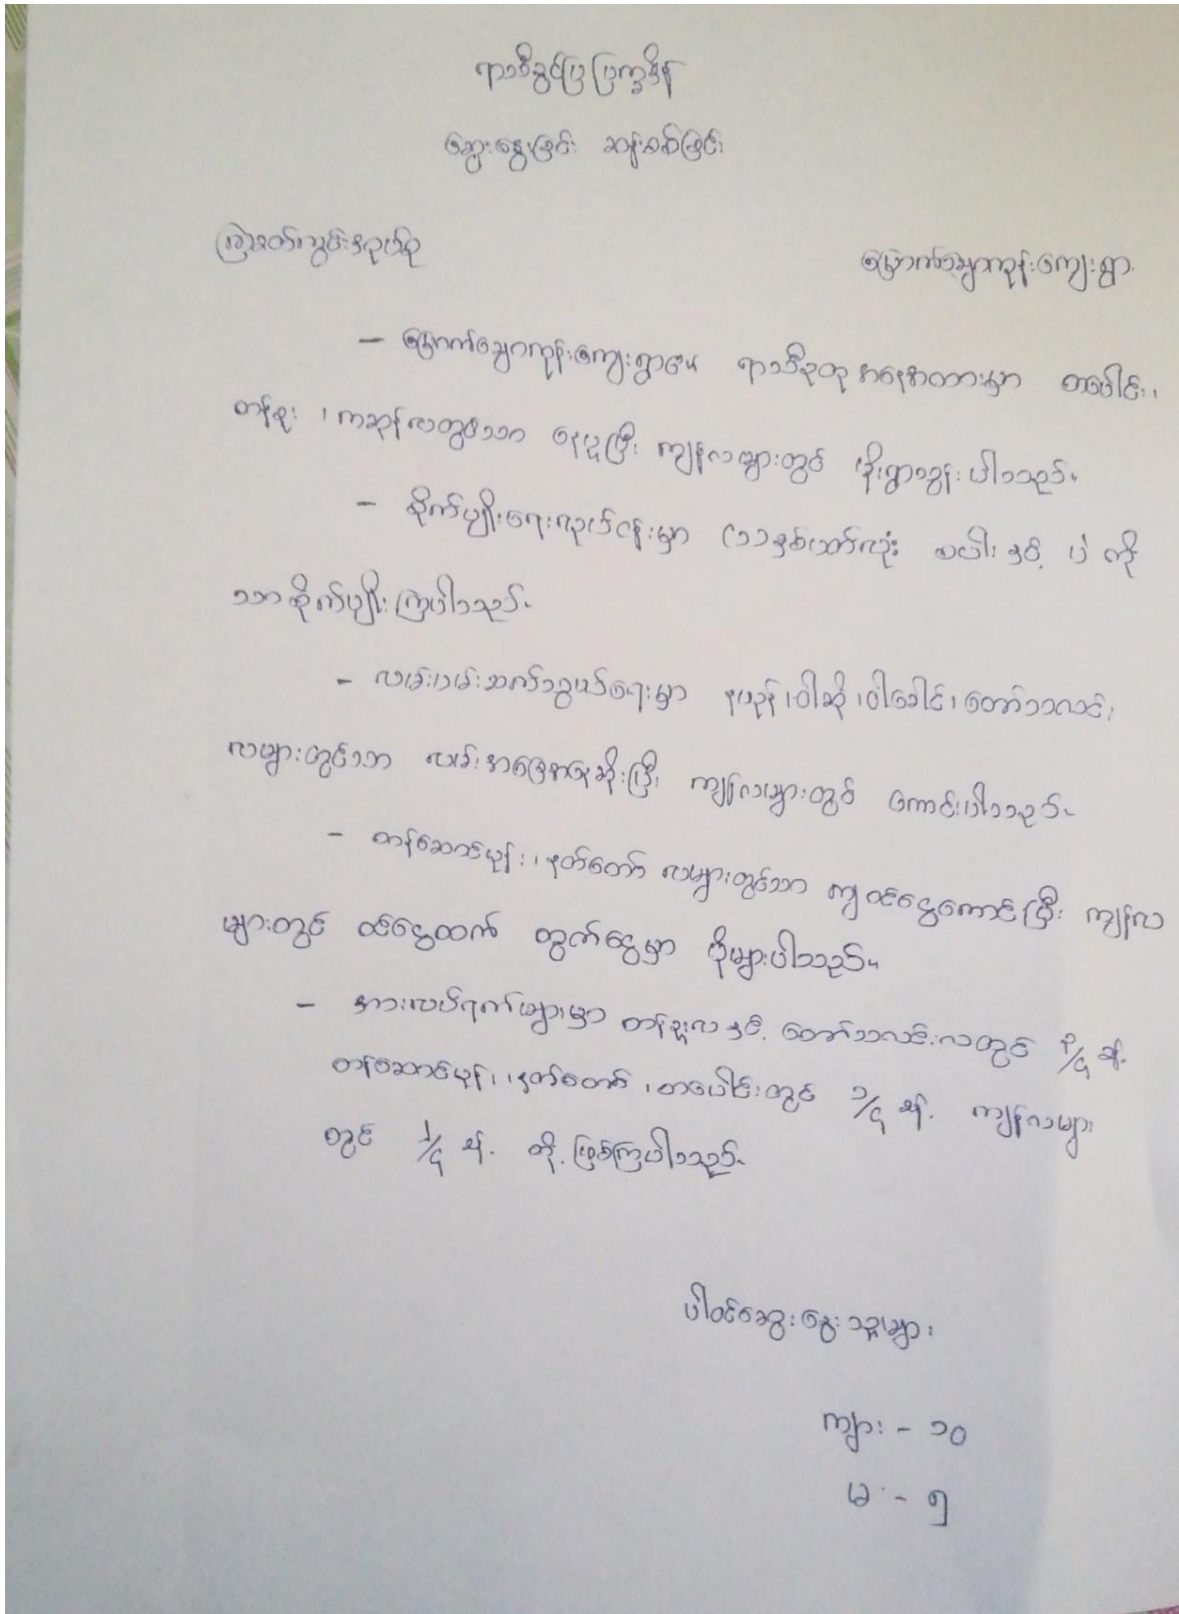 ရာသီခွင်ပြ ပြက္ခဒိန်
ဆွေးနွေးခြင်း ဆန်းစစ်ခြင်း
မြောက်ချောကုန်းကျေးရွာ
- မြောက်ချောကုန်းကျေးရွာ၏ ရာသီဥတု အနေအထားမှာ တပေါင်း၊
တန်ခူး ၊ ကဆုန်လတွင်သာ နေပူပြီး ကျန်လများတွင် မိုးရွာသွန်း ပါသည်။
- စိုက်ပျိုးရေးလုပ်ငန်းမှာ (၁)နှစ်ပတ်လုံး စပါး နှင့် ပဲ ကို
သာ စိုက်ပျိုး ကြပါသည်။
- လမ်းပမ်းဆက်သွယ်ရေးမှာ နယုန် ၊ဝါဆို ၊ဝါခေါင်၊ တော်သလင်း
လများတွင်သာ လမ်း အခြေအနေဆိုးပြီး ကျန်လများတွင် ကောင်းပါသည်။
- တန်ဆောင်မုန်း ၊ နတ်တော် လများတွင်သာ ဝင်ငွေကောင်းပြီး ကျန်လ
များတွင် ဝင်ငွေထက် ထွက်ငွေမှာ ပိုများပါသည်။
- အားလပ်ရက်များမှာ တန်ခူးလ နှင့် တော်သလင်းလတွင် ၃/၄ ခန့်
တန်ဆောင်မုန်း ၊နတ်တော် ၊တပေါင်းတွင် ၁/၄ ခန့် ကျန်လများ
တွင် ၁/၄ ခန့် တို့ ဖြစ်ကြပါသည်။
ပါဝင်ဆွေးနွေးသူများ
ကျား - ၁၀
မ - ၅